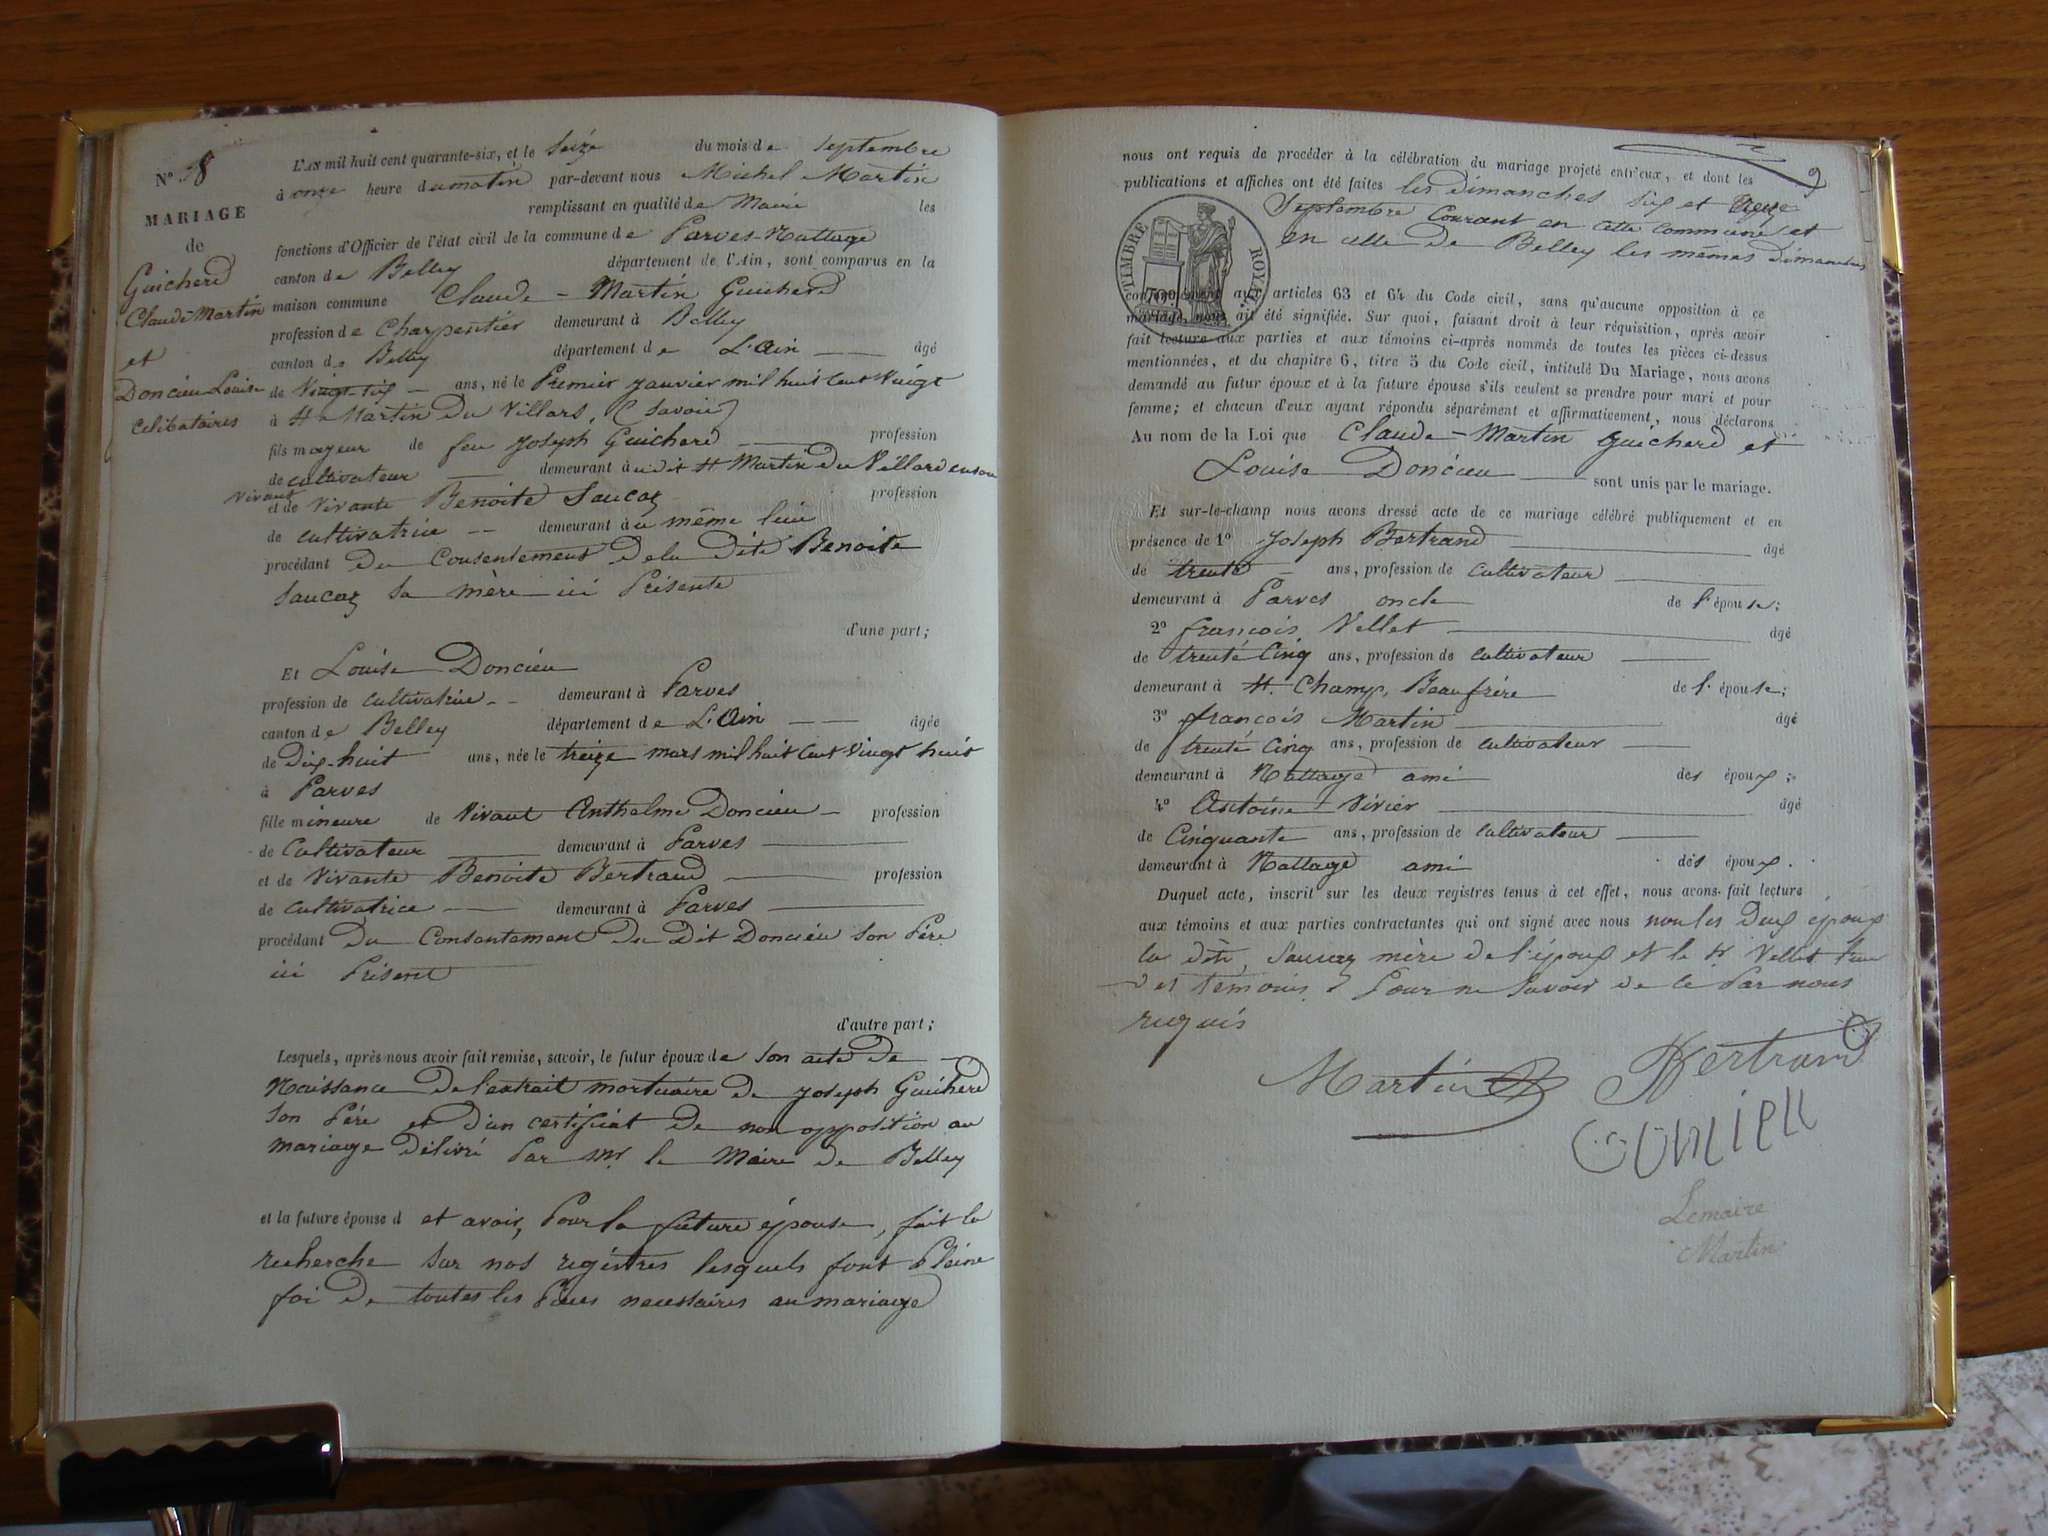 N° 8
MARIAGE
de
Guicherd
Claude-Martin
et
Doncieu Louise
Celibataires
L'AN mil huit cent quarante-six, et le Seize du mois de Septembre
à onze heure du matin par-devant nous Michel Martin
remplissant en qualité de Maire les
fonctions d'Officier de l'état civil de la commune de Parves-Nattage
canton de Belley département de l'Ain, sont comparus en la
maison commune Claude-Martin Guicherd
profession de Charpentier demeurant à Belley
canton de Belley département de L'Ain âgé
de Vingt-six ans, né le Premier janvier mil huit cent vingt
à St Martin du Villars, (Savoie)
fils mageur de feu Joseph Guicherd profession
de cultivateur demeurant à udit St Martin du Villard
vivant
et de vivante Benoite Saucaz profession
de cultivatrice demeurant à u même lieu
procédant du Consentement de la dite Benoite
Saucaz sa mère ici Présente
d'une part;
Et Louise Doncieu
profession de cultivatrice demeurant à Parves
canton de Belley département de L'Ain âgée
de Dix-huit ans, née le treize mars mil huit cent vingt huit
à Parves
fille mineure de Vivant Anthelme Doncieu profession
de Cultivateur demeurant à Parves
et de Vivante Benoite Bertrand profession
de cultivatrice demeurant à Parves
procédant du Consentement du Dit Doncieu son Père
ici Présent
d'autre part;
Lesquels, après nous avoir fait remise, savoir, le futur époux de son acte de
Naissance de l'extrait mortuaire de Joseph Guicherd
son Père et d'un certificat de non opposition au
mariage délivré Par Mr le Maire de Belley
et la future épouse d et avoir, Pour la future épouse, fait la
recherche sur nos régistres lesquels font Pleine
foi de toutes les Pièces necessaires au mariage
9
nous ont requis de procéder à la célébration du mariage projeté entr'eux, et dont les
publications et affiches ont été faites les dimanches six et treize
Septembre Courant en cette commune et
en celle de Belley les mêmes dimanches
TIMBRE ROYAL
conformément aux articles 63 et 64 du Code civil, sans qu'aucune opposition à ce
mariage nous ait été signifiée. Sur quoi, faisant droit à leur réquisition, après avoir
fait lecture aux parties et aux témoins ci-après nommés de toutes les pièces ci-dessus
mentionnées, et du chapitre 6, titre 5 du Code civil, intitulé Du Mariage, nous avons
demandé au futur époux et à la future épouse s'ils veulent se prendre pour mari et pour
femme; et chacun d'eux ayant répondu séparément et affirmativement, nous déclarons
Au nom de la Loi que Claude-Martin Guicherd et
Louise Doncieu sont unis par le mariage.
Et sur-le-champ nous avons dressé acte de ce mariage célébré publiquement et en
présence de 1° Joseph Bertrand âgé
de trente ans, profession de cultivateur
demeurant à Parves oncle de l'épouse;
2° françois Vellet âgé
de trente Cinq ans, profession de cultivateur
demeurant à St. Champ, Beaufrère de l'épouse;
3° françois Martin âgé
de trente Cinq ans, profession de cultivateur
demeurant à Nattage ami des époux;
4° Antoine Vivier âgé
de Cinquante ans, profession de cultivateur
demeurant à Nattage ami des époux.
Duquel acte, inscrit sur les deux registres tenus à cet effet, nous avons fait lecture
aux témoins et aux parties contractantes qui ont signé avec nous non les Deux époux
la dite Saucaz mère de l'époux et le Sr Vellet l'un
des témoins Pour ne savoir de ce Par nous
requis
Martin Bertrand
Lemaire
Martin